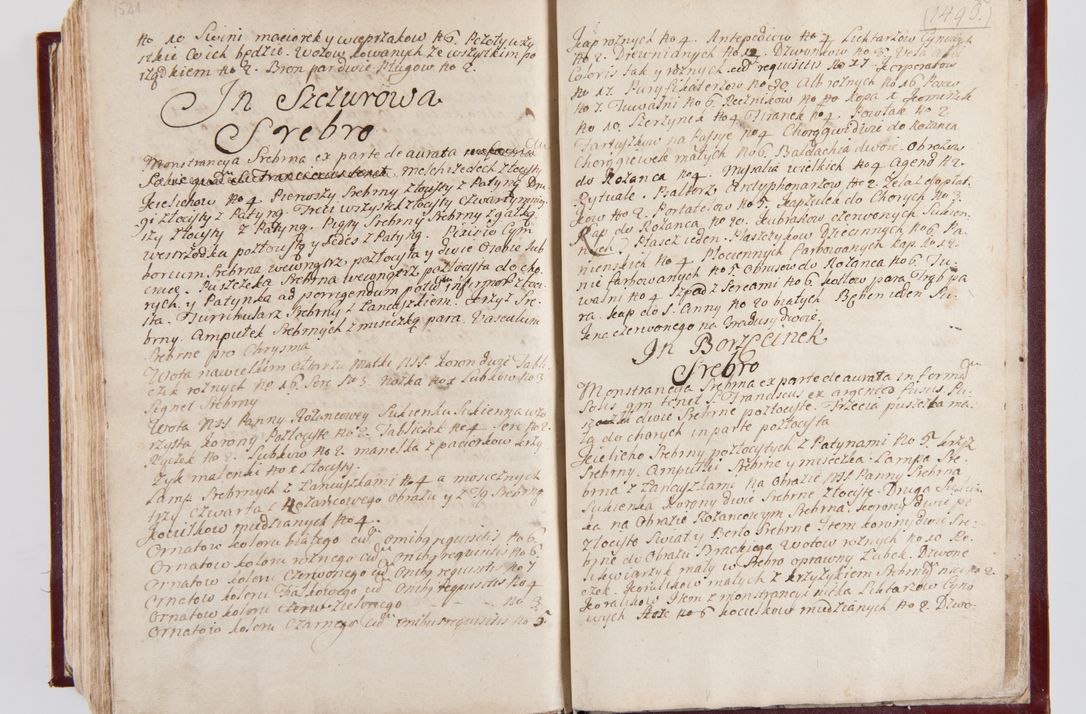 1521
No 10 Swini maciorek y wieprzakow No 6. Poloty wszy
stkie Co ich będzie. Wozow kowanych ze wszystkim po
rządkiem No 2. Bron par dwie Pługow No 2.
In Szczurowa
Srebro
Monstrancya Srebrna ex parte de aurata
Franciscus miesiedzech złocisty
Kielichow No 4 Pierwszy Srebrny złocisty z Patyną Dru
gi złocisty z Patyną. Trzeci wszystek złocisty Czwarty mniey
szy złocisty z Patyną. Piąty Srebrny Srebrny z gałką
westrzodka pozłocistą y Sedes z Patyną.
borium Srebrna wewnątrz pozłocista y dwie Osobie Sub
cnieę. Puszeczka Srebrna wewnątrz pozłocista do cho
rych y Patynka ad porrigendum infirmor złoci
sta. Turribularz Srebrny z Łancuszkiem. Krzyż Sre
brny. Ampułek Srebrnych z miseczką para. Vasculum
Srebrne pro Chrysma
Wota na wielkim ołtarzu Matki NSS koron duże Tabli
czek roznych No 16. Serc No 3. Nozka No 1 Lubkow No 3
Signet Srebrny
Wota NSS Panny Rożancowey Sukienka Sukienna wzo
rzysta korony Pozłociste No 2. Tabliczek No 4. Serc No 2.
Ręczek No 2. Lubkow No 2. manelka z paciorkow krzy
żyk malenki No 1 złocisty.
Lamp Srebrnych z Łancuszkami No 4 a mosiężnych
trzy Czwarta z Rożancowego obrazu y z Srebrną
kociełkow miedzianych No 4.
Ornatow koloru białego cum omnibq requisitis No 6
Ornatow koloru roznego cum Onibq requisitis No 6
Ornatow koloru czerwonego cum Onibq requisitis No 7
Ornatow koloru Fiałkowego cum Onibq requisitis No 4
Ornatow koloru czerw Zielonego - - - No 3
Ornatow koloru Czarnego cum omnibus requisitis No 5
(1493)
kap roznych No 4. Antepediow No 4 Lichtarzow Cynowych
No 2. Drewnianych No 12. Dzwonkow No 3. Vela Cuius
Coloris tak y roznych cum requisitis No 17. Korporałow
No 17. Puryfikaterzow No 30. Alb roznych No 16. Pasow
No 7. Tuwalni No 6. Ręcznikow No No kopa 1 komeżek
No 10. Szerzynek No 4 Firanek No 4. Powłok No 2
Fartuszkow na Passye No 4 Chorągwi Duże do Rożanca
Chorągiewek małych No 6. Baldachia dwoie. Obrazow
do Rożanca No 4. Mszalia wielkich No 4 Agend No 2.
Rytuale. Psalterz. Antyphonarzow No 2. Zelaz do płat
kow No 2. Portatelow No 5. kapzulka do Chorych No 3.
Kap do Rożanca No 20. kubrakow czerwonych Sukien
nych Płascz ieden. Płaszczykow Dziecinnych No 6. Pa
nienskich No 4. Płociennych Farbowanych kap. No 12.
nie farbowanych No 5 Obrusow do Rożanca No 6. Tu
walni No 4 Szpad z Sercami No 6. kotłow para Trąb pa
ra. kap do S. Anny No 20 białych Bęben ieden Su
kna czerwonego na Gradusy dwoie.
In Borzęcinek
Srebro
Monstrancya Srebrna ex parte de aurata in formam
Solis quam tenet S. Franciscus ex argento fusus Pu
szek dwie Srebrne pozłociste. Trzecia puszka ma
ła do chorych in parte pozłocista
Kielicho Srebrny pozłocistych z Patynami No 5. krzyż
Srebrny. Ampułki Srebrne y miseczka. Lampa Sre
brna z Łancuszkami na Obrazie NSS Panny Srebrna
Sukienka Korony dwie Srebrne złociste. Druga Sukien
ka na Obrazie Rożancowym Srebrna. korony dwie po
złociste Swiat y Berło Srebrne. Item korony dwie Sre
brne do Obrazu Brackiego. Wotow roznych No 10. Re
likwiarzyk mały w Srebro oprawny Lubek. Dzwone
czek. koralikow małych z krzyżykiem Srebrnym nici No 2.
koralikow. Item z monstrancyi nitka Lichtarzow Cyno
wych No 6 kociełkow miedzianych No 2. Dzwo-